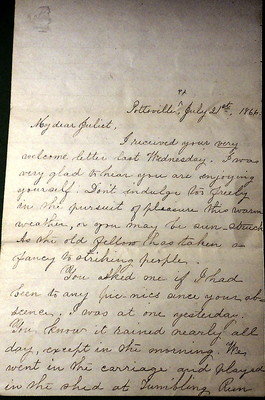 Pa
Pottsville, July 21st, 1864.
My dear Juliet,
I received your very
welcome letter last Wednesday. I was
very glad to hear you are enjoying
yourself. Don't indulge to freely
in the pursuit of pleasure this warm
weather, or you may be sun struck
As the old fellow has taken a
fancy to striking people.
You asked me if I had
been to any pic nics since your ab-
sence. I was at one yesterday.
You know it rained nearly all
day, except in the morning. We
went in the carriage and played
in the shed at Tumbling Run